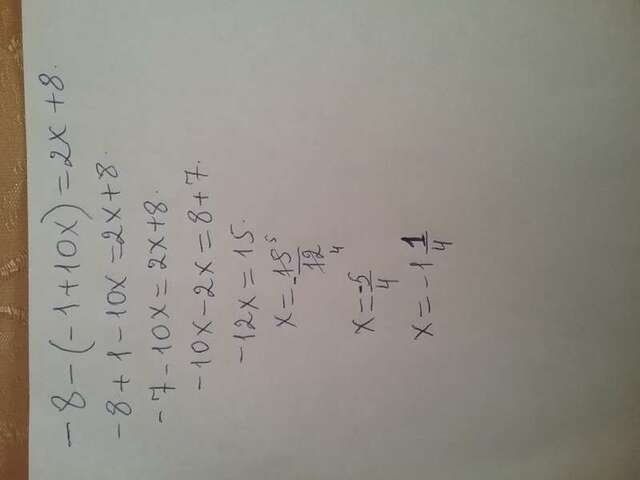 -8-(-1+10x)=2x+8.
-8+1-10x=2x+8.
-7-10x=2x+8.
-10x-2x=8+7.
-12x=15.
x=-15/12 5 4
x=-5/4
x=-1 1/4